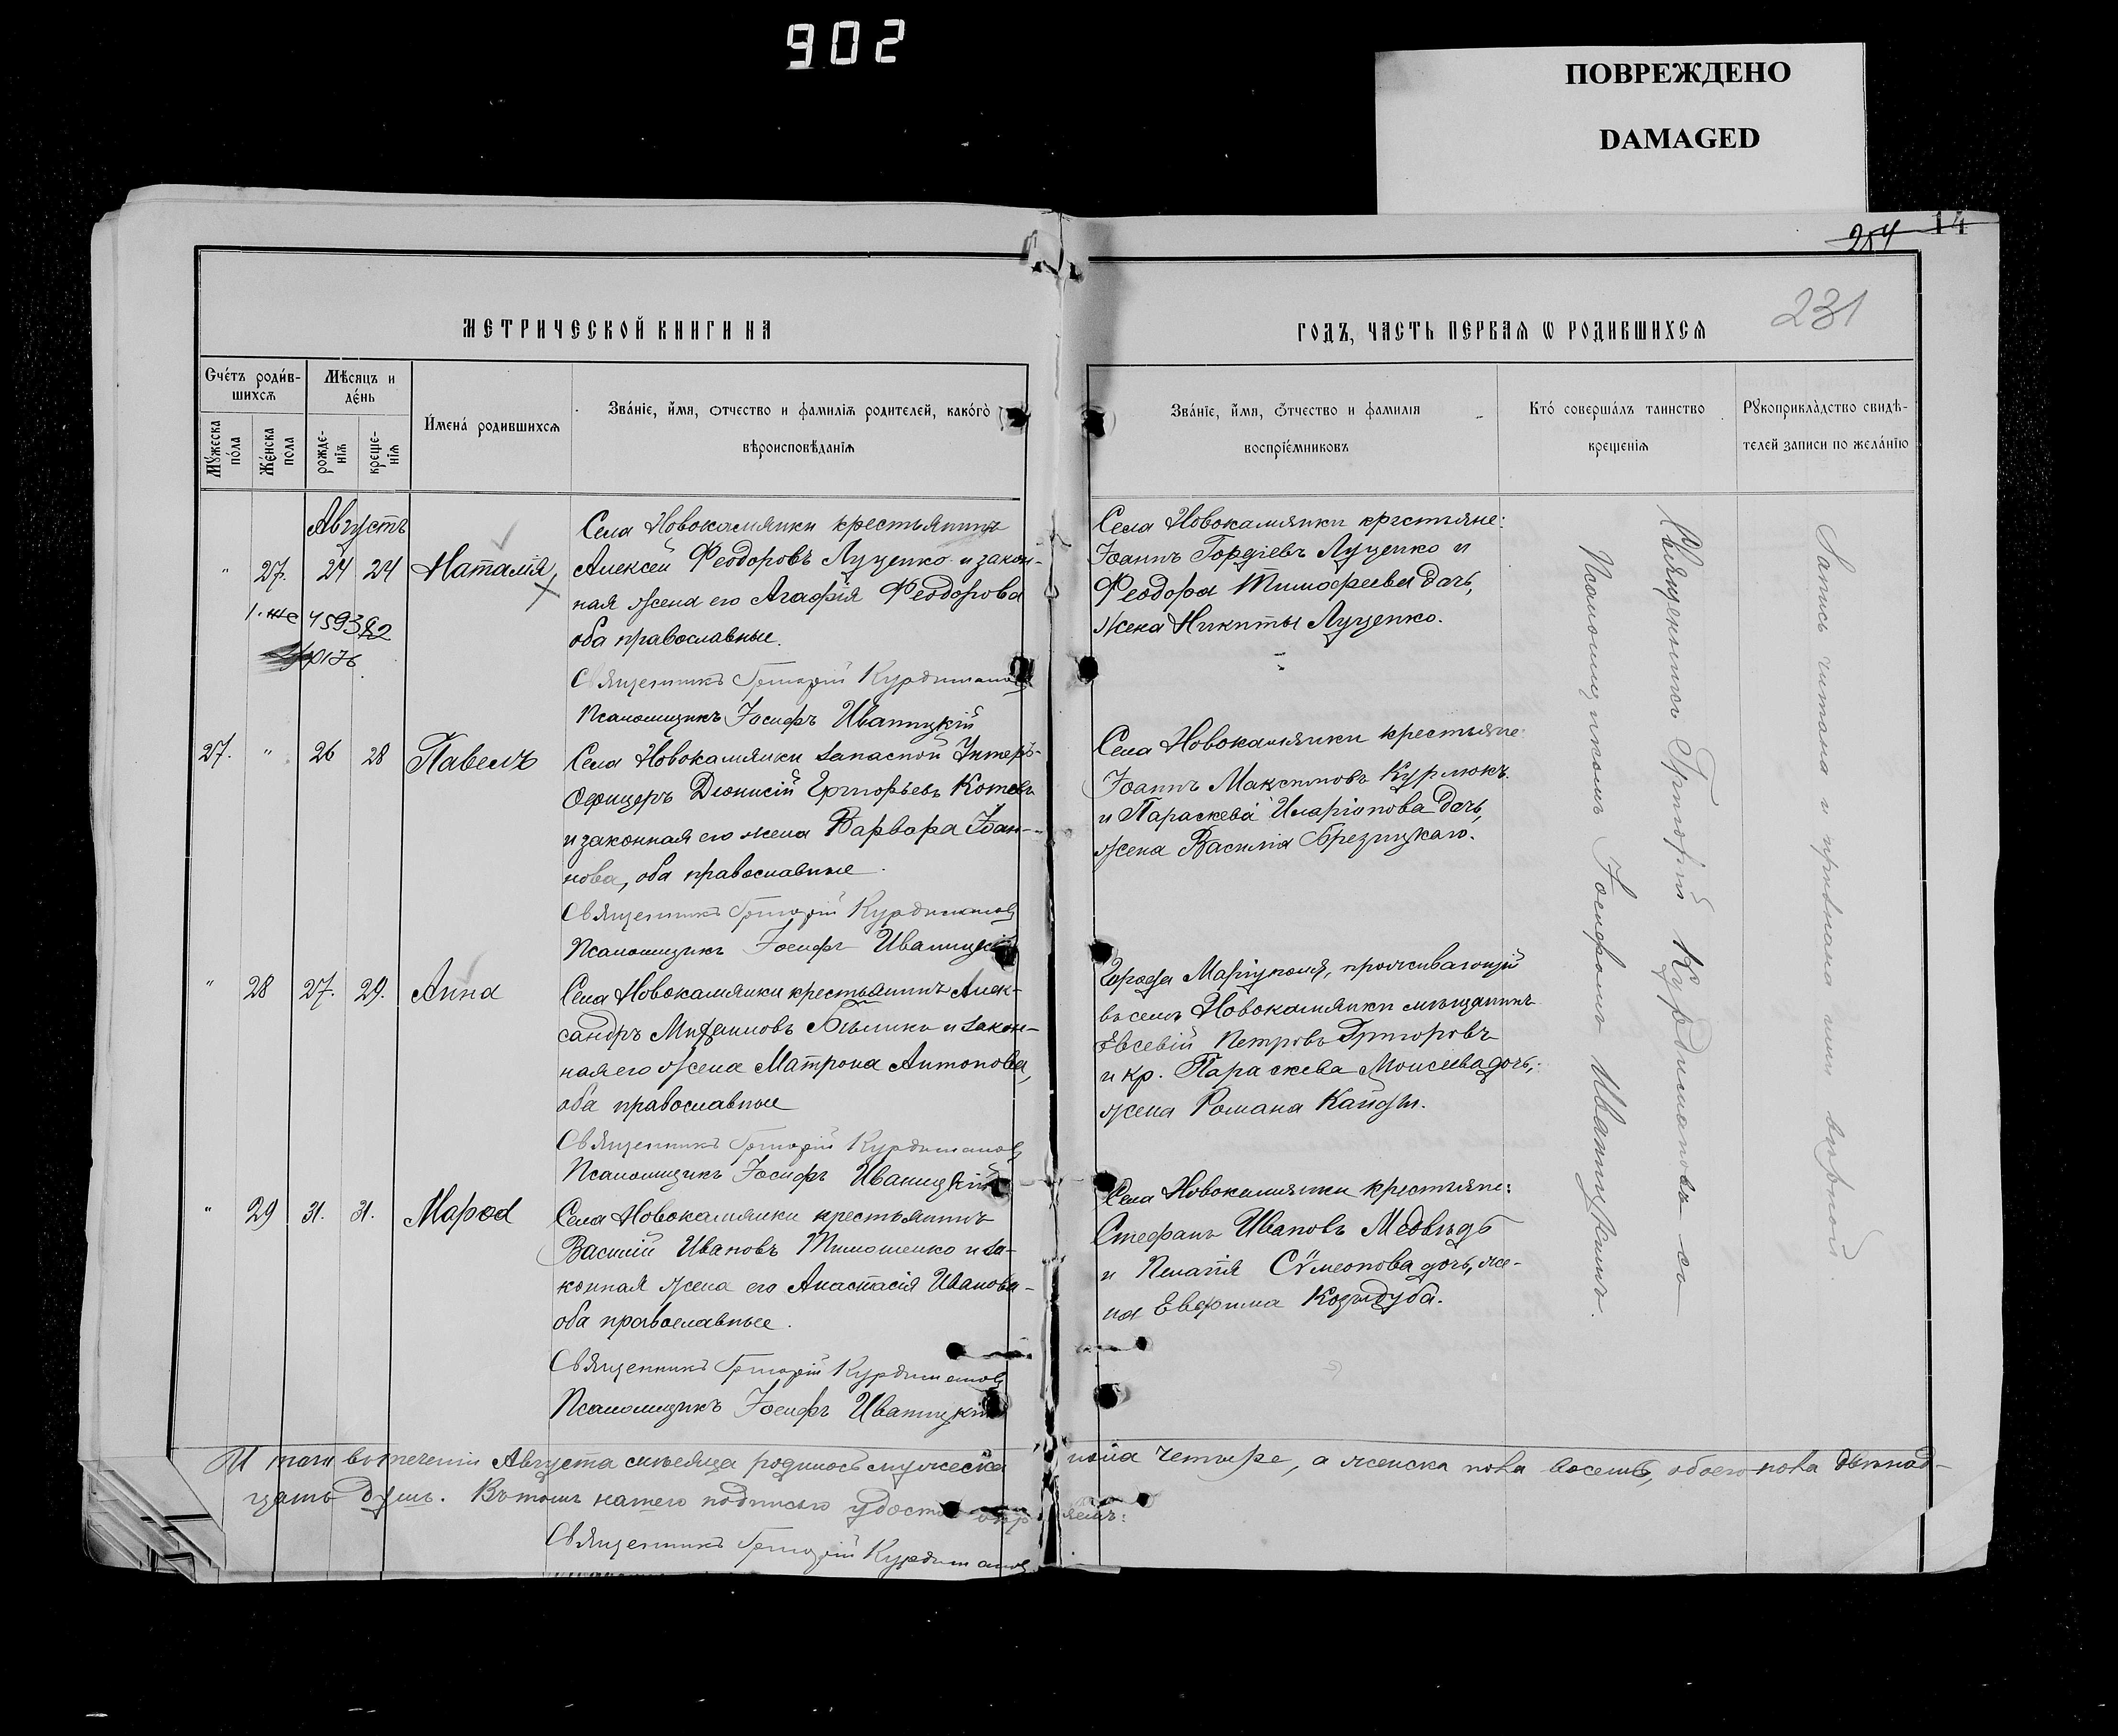 902
ПОВРЕЖДЕНО
DAMAGED
254 14
231
МЕТРИЧЕСКОЙ КНИГИ НА
ГОДЪ, ЧАСТЬ ПЕРВАЯ Ѡ РОДИВШИХСЯ
Счетъ родив-
шихся
Мѣсяцъ и
день
Мужеска
пола
Женска
пола
рожде-
нія
креще-
нія
Имена родившихся
Званіе, имя, отчество и фамилія родителей, какого
вѣроисповѣданія
Званіе, имя, отчество и фамилія
воспріемниковъ
Кто совершалъ таинство
крещенія
Рукоприкладство свидѣ-
телей записи по желанію
Августъ
" 27. 24 24 Наталія
1-же 459382
Села Новокамянки крестьянинъ
Алексей Феодоровъ Луценко и закон-
ная жена его Агафія Феодорова
оба православные.
Священникъ Григорій Курдимановъ
Псаломщикъ Іосифъ Иваницкій
Села Новокамянки крестьяне:
Іоаннъ Гордіевъ Луценко и
Феодора Тимофеева дочь,
жена Никиты Луценко.
27. " 26 28 Павелъ
Села Новокамянки запасной Унтеръ-
Офицеръ Діонисій Григорьевъ Котовъ
и законная его жена Варвара Іоан-
нова, оба православные.
Священникъ Григорій Курдимановъ
Псаломщикъ Іосифъ Иваницкій
Села Новокамянки крестьяне:
Іоаннъ Максимовъ Курлюкъ
и Параскева Иларіонова дочь,
жена Василія Брезицкаго.
" 28 27. 29. Анна
Села Новокамянки крестьянинъ Алек-
сандръ Михаиловъ Бѣлико и закон-
ная его жена Матрона Антонова,
оба православные
Священникъ Григорій Курдимановъ
Псаломщикъ Іосифъ Иваницкій
Города Маріуполя, проживающій
въ селѣ Новокамянки мѣщанинъ
Евсевій Петровъ Григоровъ
и кр. Параскева Моисеева дочь,
жена Романа
" 29 31. 31. Марѳа
Села Новокамянки крестьянинъ
Василій Ивановъ Тимошенко и за-
конная жена его Анастасія Иванова
оба православные.
Священникъ Григорій Курдимановъ
Псаломщикъ Іосифъ Иваницкій
Села Новокамянки крестьяне:
Стефанъ Ивановъ Медвѣдь
и Пелагія Сѵмеонова дочь, же-
на Евфима Козыдуба.
Священникъ Григорій Курдимановъ съ
Псаломщикомъ Іосифомъ Иваницкимъ.
Запись читана и признана нами вѣрной.
Итого въ теченіи Августа мѣсяца родилось мужеска пола четыре, а женска пола восемь, обоего пола двѣнад-
цать душъ. Въ томъ нашею подписью удостовѣряемъ:
Священникъ Григорій Курдимановъ